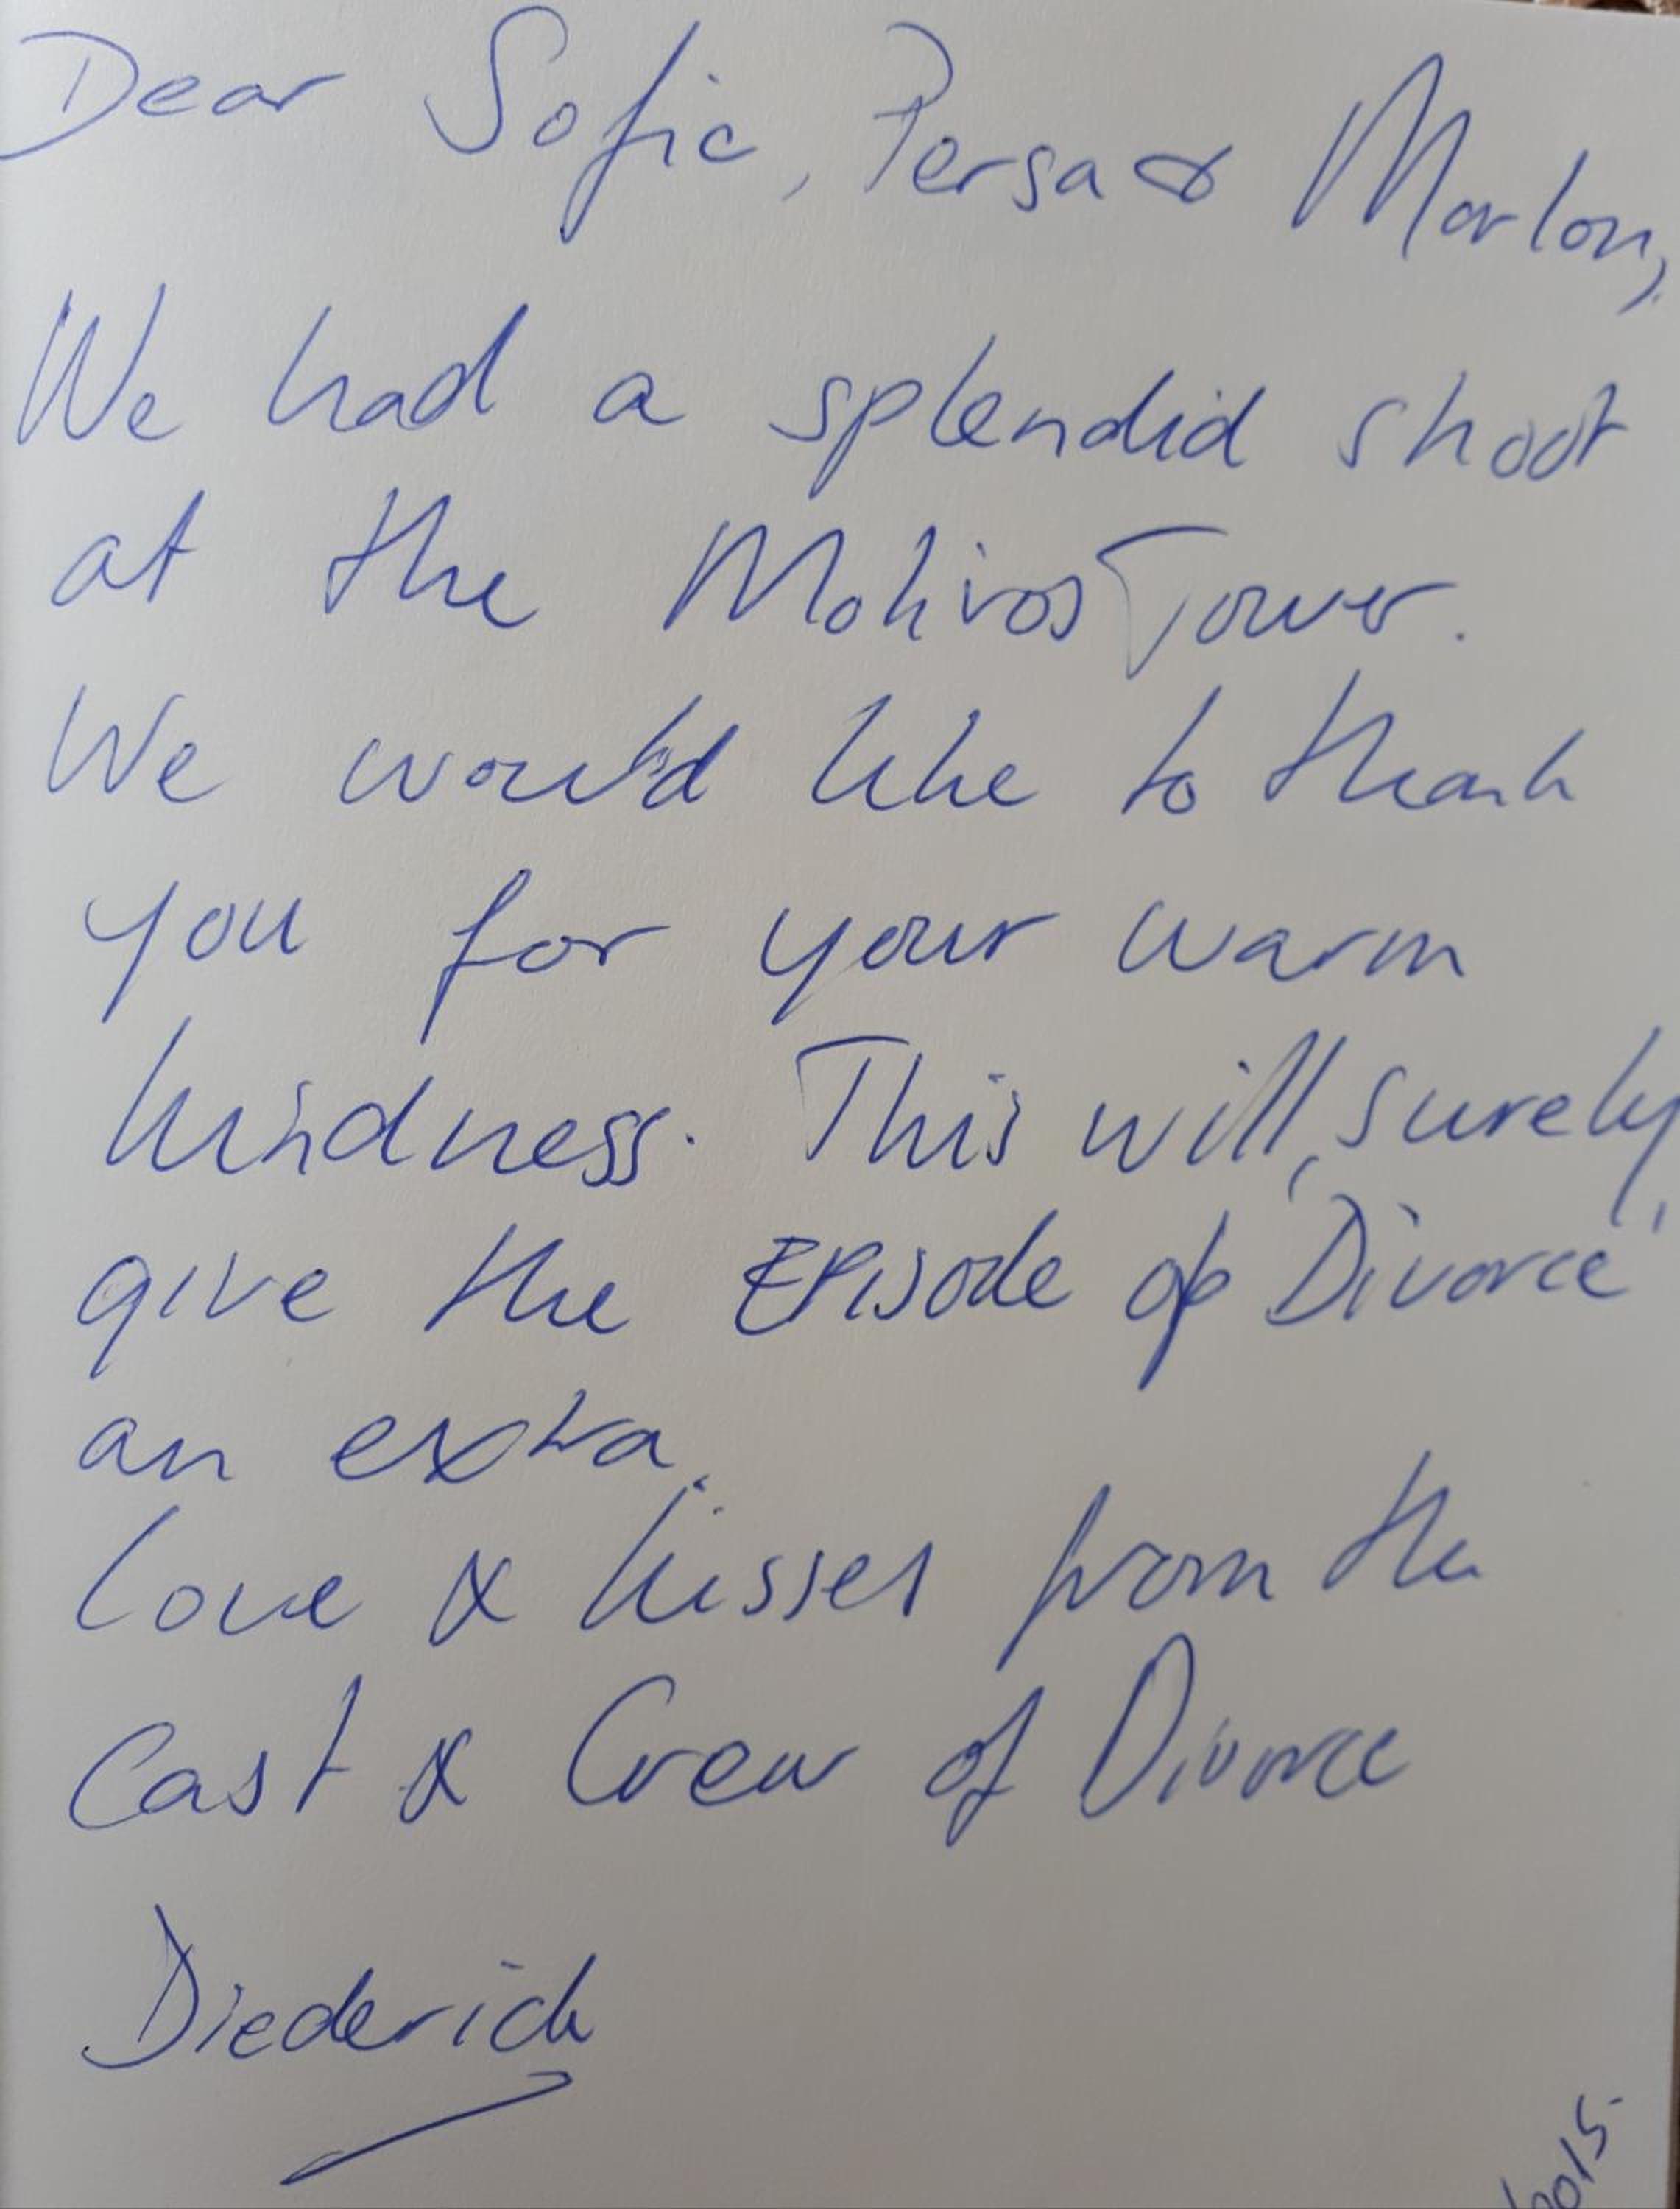 Dear Sofie, Persa & Marlon,
We had a splendid shoot
at the Molivos Tower.
We would like to thank
you for your warm
kindness. This will, surely,
give the Episode of Divorce
an extra.
Love & kisses from the
Cast & Crew of Divorce
Diederick
2015